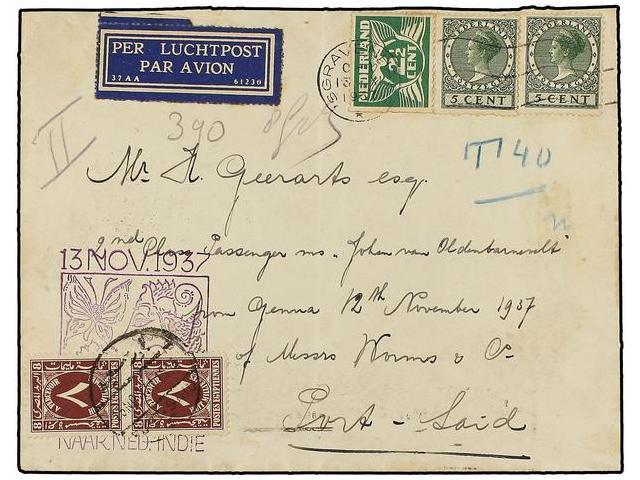 PER LUCHTPOST
PAR AVION
37AA 61230
NEDERLAND
2½
CENT
NEDERLAND
5 CENT
NEDERLAND
5 CENT
'SGRAV
II
390
T 40
Mr. H. Geerarts esq.
2nd Class Passenger ms. "Johan van Oldenbarnevelt"
from Genua 12th November 1937
℅ Messrs Worms & Co.
Port-Said
13 NOV. 1937
NAAR NED. INDIE
8 8
POSTES EGYPTIENNES